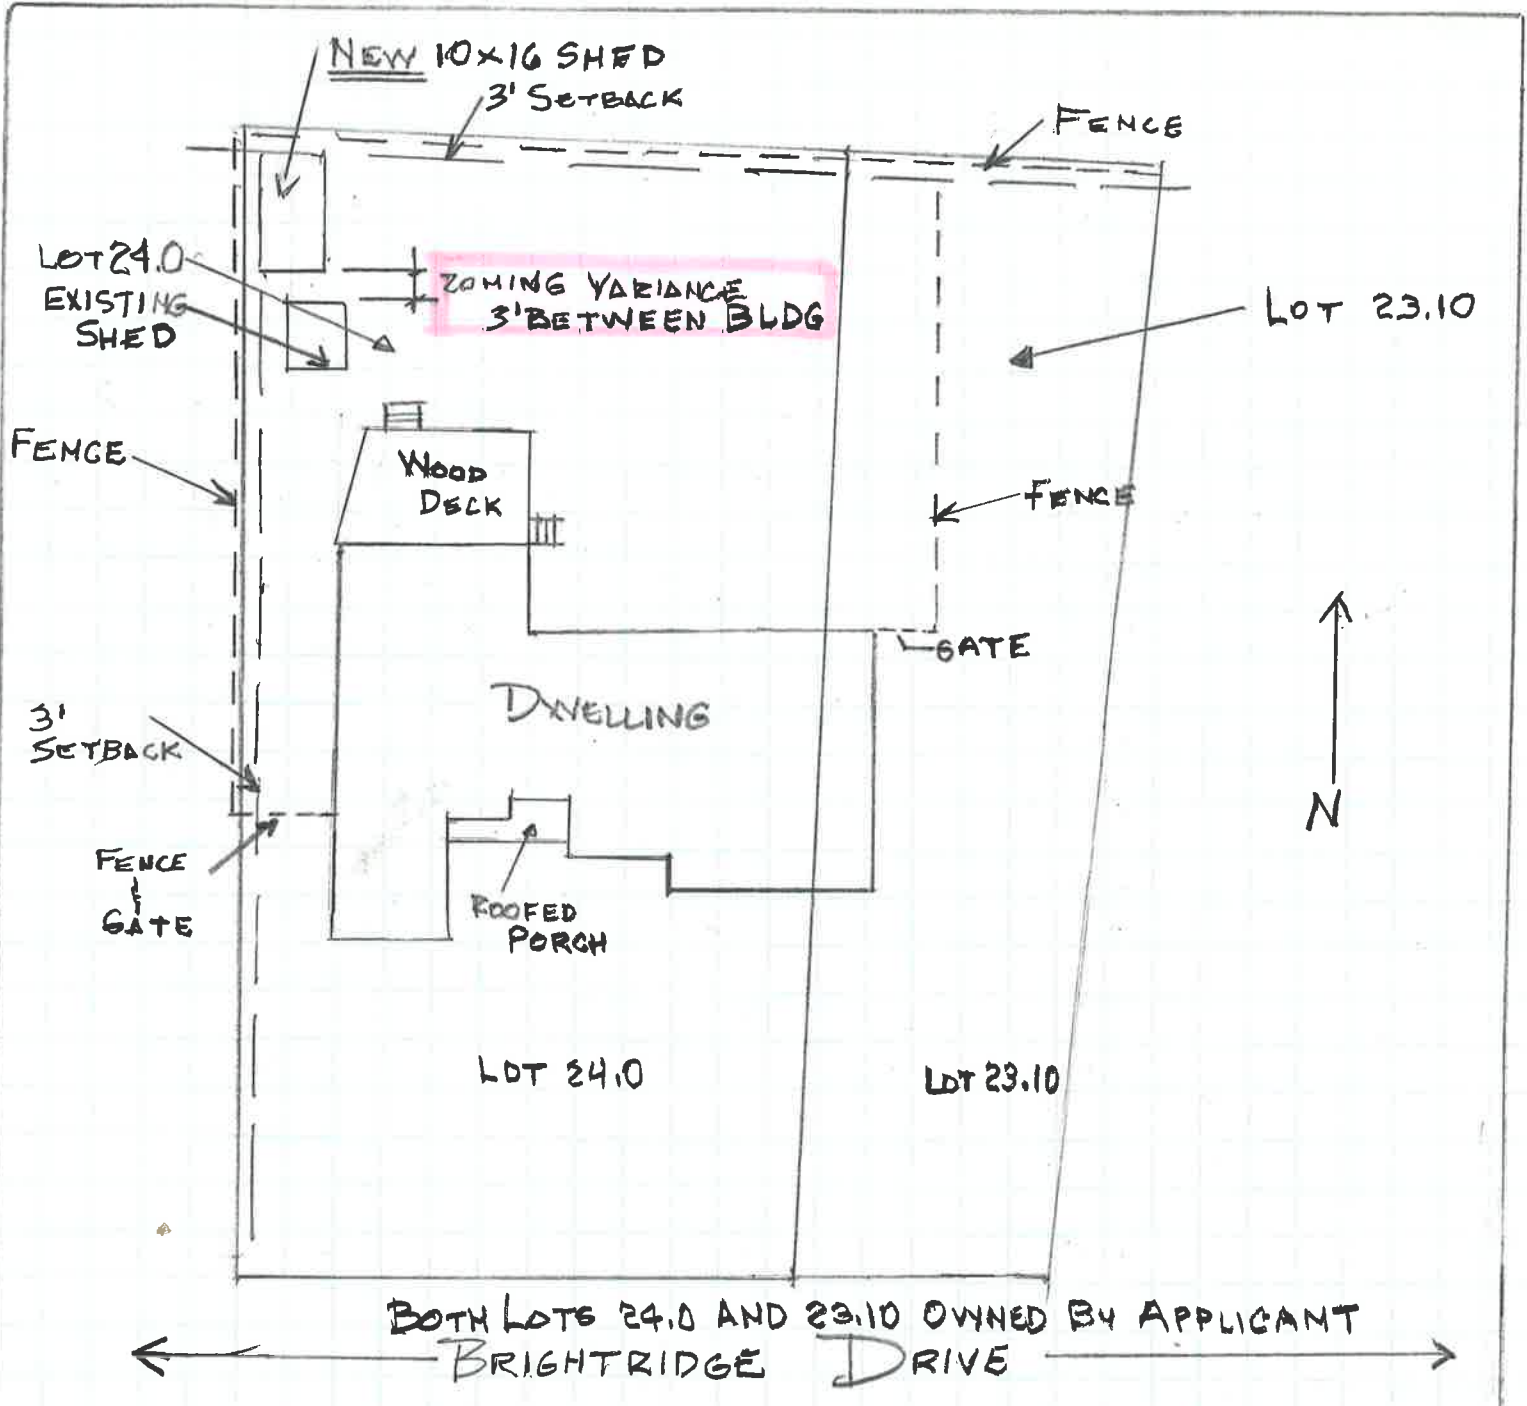 NEW 10x16 SHED
3' SETBACK
FENCE
LOT 24.0
EXISTING
SHED
ZONING VARIANCE
3' BETWEEN BLDG
LOT 23.10
FENCE
WOOD
DECK
FENCE
GATE
DWELLING
3'
SETBACK
N
FENCE
&
GATE
ROOFED
PORCH
LOT 24.0
LOT 23.10
BOTH LOTS 24.0 AND 23.10 OWNED BY APPLICANT
BRIGHTRIDGE DRIVE